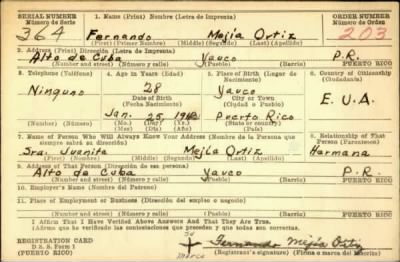 SERIAL NUMBER 1. Name (Print) Nombre (Letra de Imprenta) ORDER NUMBER
Número de Serie Número de Orden
364 Fernando Mejia Ortiz 203
(First) (Primer Nombre) (Middle) (Segundo) (Last) (Apellido)
2. Address (Print) Dirección (Letra de Imprenta)
Alto de Cuba Yauco P.R.
(Number and street) (Número y calle) (Town) (Pueblo) (County) (Barrio) PUERTO RICO
3. Telephone (Teléfono) 4. Age in Years (Edad) 5. Place of Birth (Lugar de Nacimiento) 6. Country of Citizenship (Ciudadanía)
Ninguno 28 Yauco E.U.A.
Date of Birth City or Town
(Fecha Nacimiento) (Ciudad o Pueblo)
Jan. 25 Puerto Rico
(Mo.) (Day) (Yr.) State or country)
(Mes) (Día) (Año) (Estado o país)
7. Name of Person Who Will Always Know Your Address (Nombre de la Persona que siempre sabrá su dirección) 8. Relationship of That Person (Parentesco)
Sra. Juanita Mejia Ortiz Hermana
(Mr., Mrs., Miss) (First) (Middle) (Last)
(Sr., Sra., Srta.) (Primer Nombre) (Segundo) (Apellido)
9. Address of That Person (Dirección de esa persona)
Alto de Cuba Yauco P.R.
(Number and street) (Número y calle) (Town) (Pueblo) (County) (Barrio) PUERTO RICO
10. Employer's Name (Nombre del Patrono)
11. Place of Employment or Business (Dirección del empleo o negocio)
(Number and street) (Número y calle) (Town) (Pueblo) (County) (Barrio) PUERTO RICO
I Affirm That I Have Verified Above Answers And That They Are True.
Afirmo que he verificado las contestaciones que preceden y que todas son correctas.
REGISTRATION CARD
D. S. S. Form 1
(PUERTO RICO)
Fernando Mejia Ortiz
(Registrant's signature) (Firma o marca del inscrito)